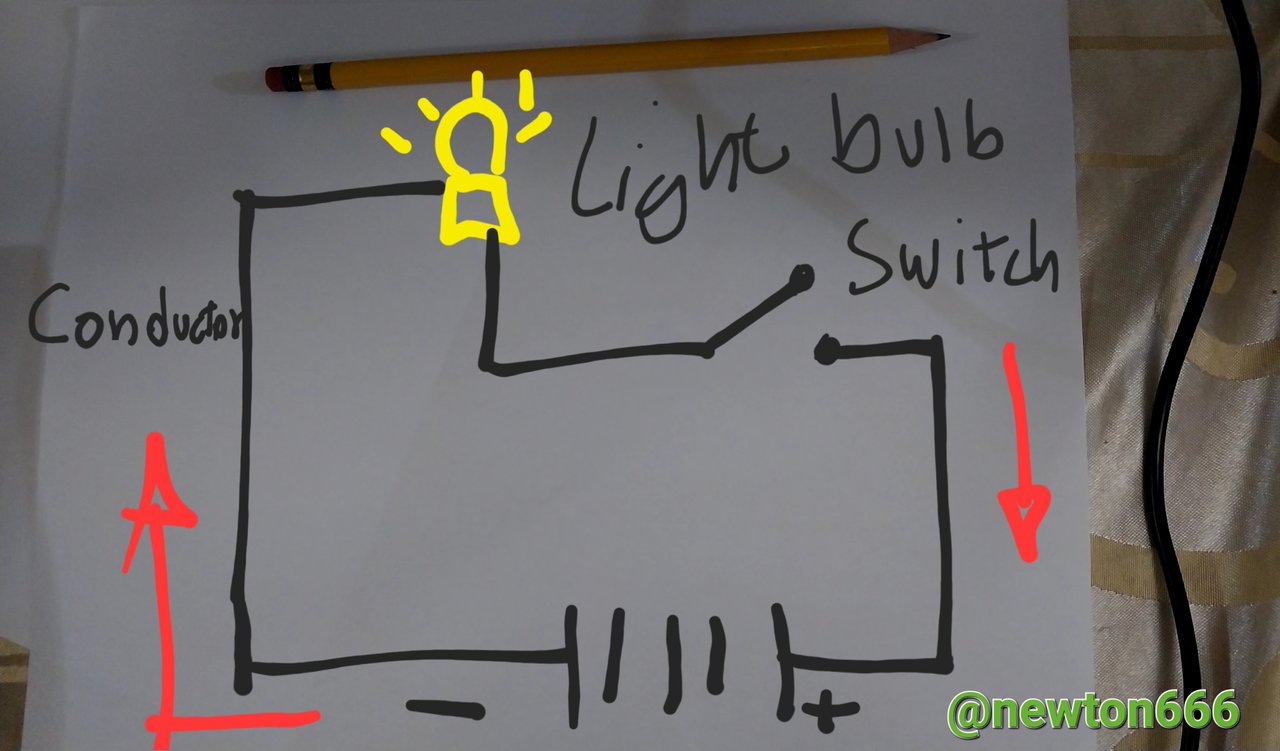 Light bulb
Switch
Conductor
- +
@newton666